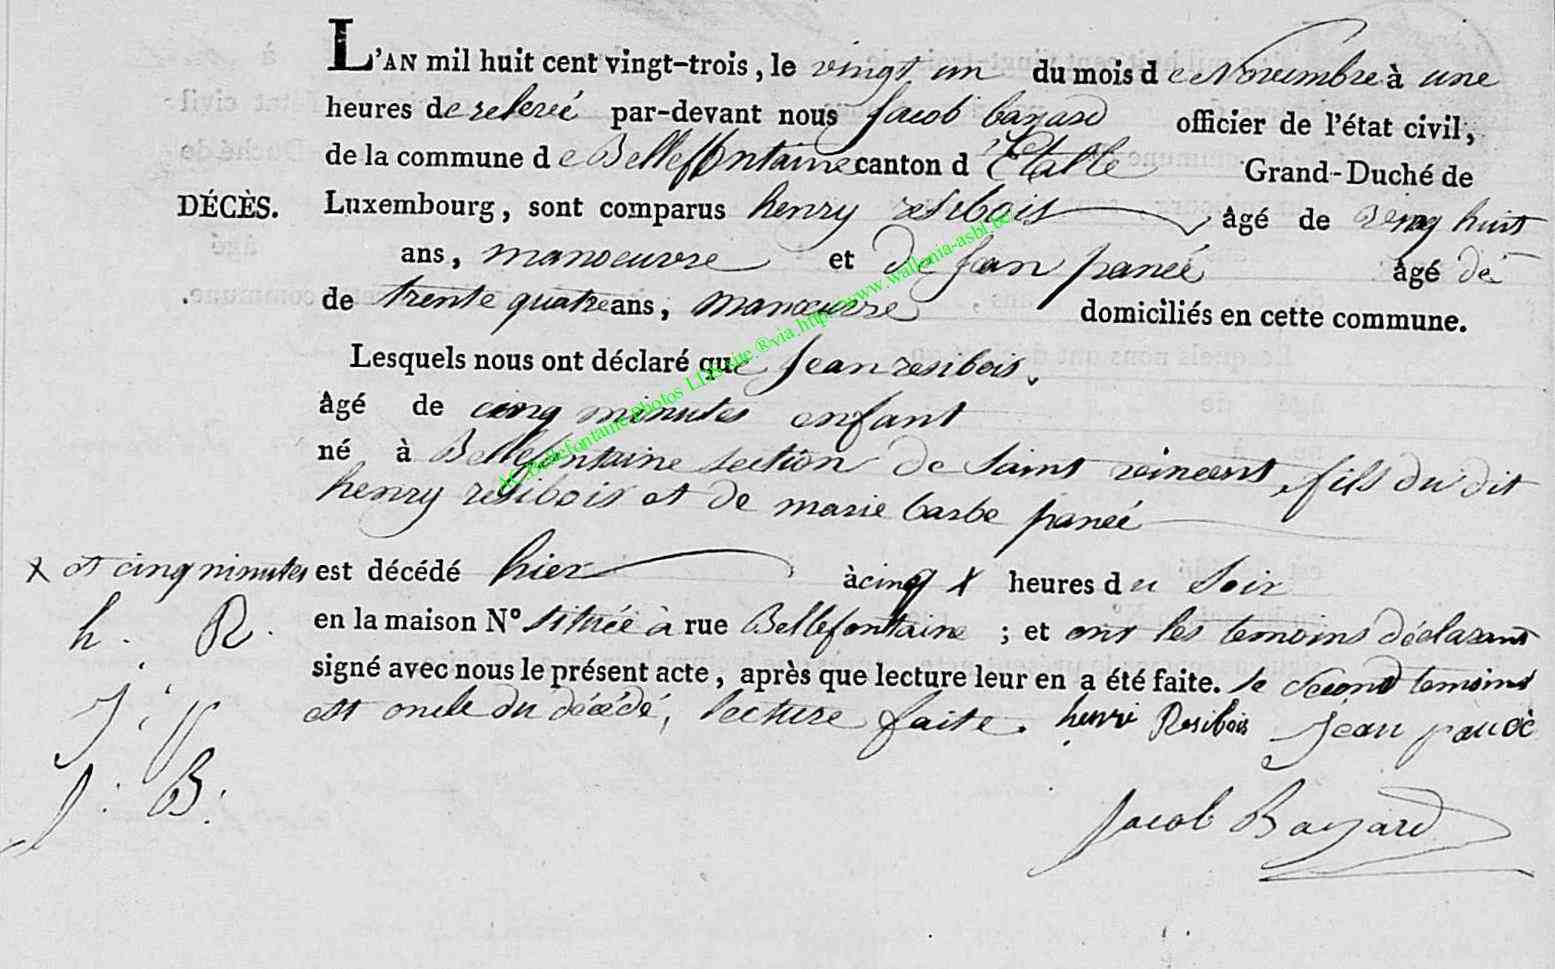 L'AN mil huit cent vingt-trois, le vingt un du mois de Novembre à une
heures de relevé par-devant nous Jacob bayard officier de l'état civil,
de la commune de Bellefontaine canton d'Etalle Grand-Duché de
DÉCÈS. Luxembourg, sont comparus henry resibois âgé de vingt huit
ans, manoeuvre et de Jean paneé âgé de
de trente quatre ans, manœuvre domiciliés en cette commune.
Lesquels nous ont déclaré que Jean resibois,
âgé de cinq minutes enfant
né à Bellefontaine section de Saint vincent, fils du dit
henry resibois et de marie barbe paneé
x et cinq minutes est décédé hier à cinq x heures du Soir
h. R. en la maison N° située à rue Bellefontaine ; et ont les temoins déclarant
signé avec nous le présent acte, après que lecture leur en a été faite. le second temoins
J: p est oncle du décédé, lecture faite. henri Resibois Jean
J: B: Jacob Bayard
AC Bellefontaine photos LDS site ® via http://www.wallonia-asbl.be/